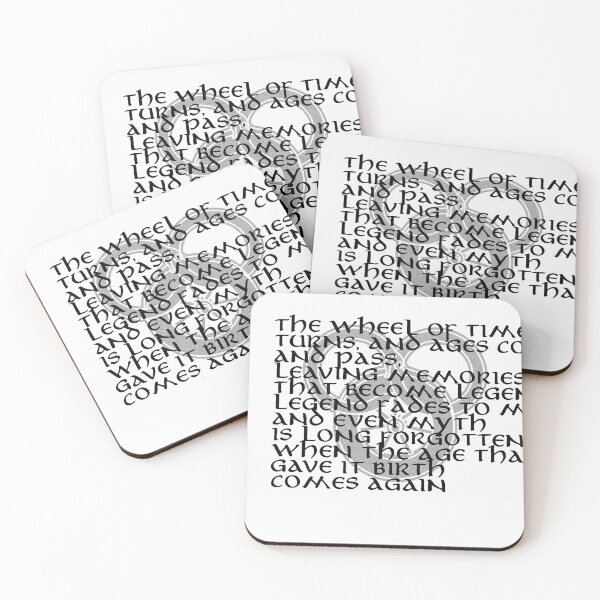 THE WHEEL OF TIME
TURNS, AND AGES CO
AND PASS,
LEAVING MEMORIES
THAT BECOME
LEGEND FADES
THE WHEEL OF TIME
TURNS, AND AGES CO
AND PASS,
LEAVING MEMORIES
THAT BECOME LEGEN
LEGEND FADES TO M
AND EVEN MYTH
IS LONG FORGOTTEN
WHEN THE AGE THA
GAVE IT BIRTH
THE WHEEL OF TIM
TURNS, AND AGES
AND PASS,
LEAVING MEMORIES
THAT BECOME LEGEN
LEGEND FADES TO M
AND EVEN MYTH
IS LONG FORGOTTEN
WHEN THE AGE
GAVE IT BIRTH
COMES AGAIN
THE WHEEL OF TIME
TURNS, AND AGES CO
AND PASS,
LEAVING MEMORIES
THAT BECOME LEGEN
LEGEND FADES TO M
AND EVEN MYTH
IS LONG FORGOTTEN
WHEN THE AGE THA
GAVE IT BIRTH
COMES AGAIN